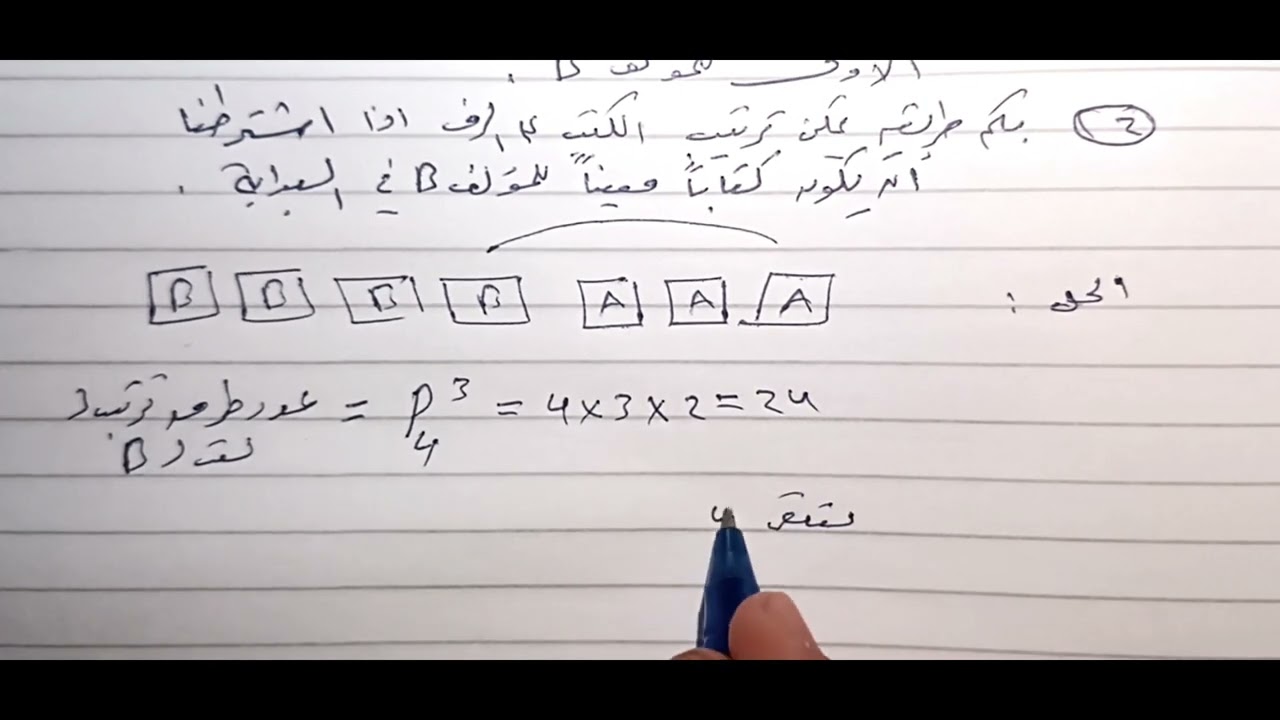 الاولى للمؤلف B .
2 بكم طريقة يمكن ترتيب الكتب على الرف اذا اشترطنا
أن يكون كتاباً معيناً للمؤلف B في البداية .
الحل :
B B B B A A A
عدد طرق ترتيب 3 = P 3 4 = 4 × 3 × 2 = 24
كتب لـ B